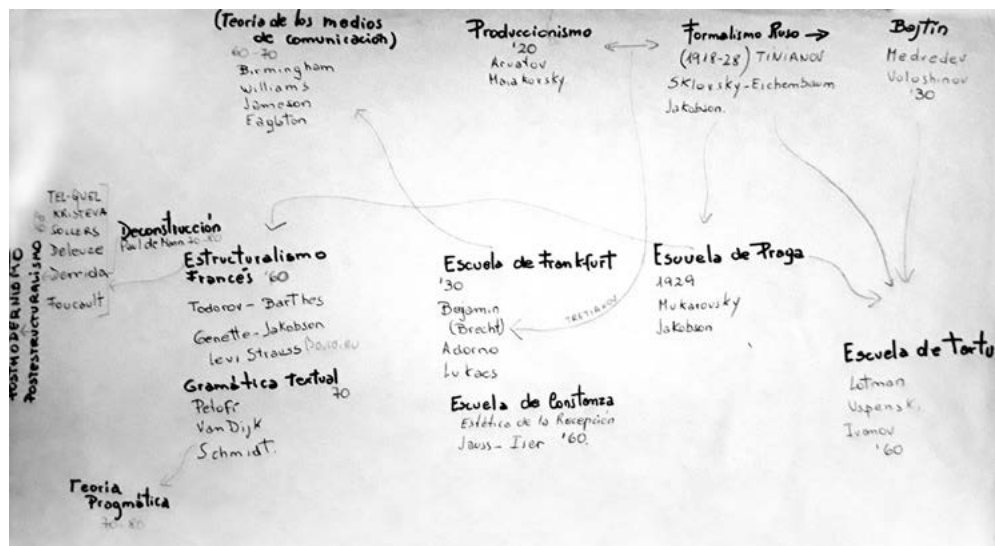 (Teoría de los medios
de comunicación)
60-70
Birmingham
Williams
Jameson
Eagleton
Produccionismo
'20
Arvatov
Maiakovsky
Formalismo Ruso →
(1918-28) TINIANOV
Sklovsky-Eichembaum
Jakobson.
Bajtín
Medvedev
Voloshinov
'30
TEL-QUEL
KRISTEVA
SOLLERS
Deleuze
Derrida
Foucault
POSTMODERNISMO
POSTESTRUCTURALISMO
Deconstrucción
Paul de Mann 70-80
Estructuralismo
Francés '60
Todorov - Barthes
Genette - Jakobson
Levi Strauss
Gramática Textual
70
Petofi
Van Dijk
Schmidt.
Teoría
Pragmática
70-80
Escuela de Frankfurt
'30
Benjamin
(Brecht)
Adorno
Lukacs
TRETIAKOV
Escuela de Constanza
Estética de la Recepción
Jauss - Iser '60.
Escuela de Praga
1929
Mukarovsky
Jakobson
Escuela de Tartu
Lotman
Uspenski
Ivanov
'60